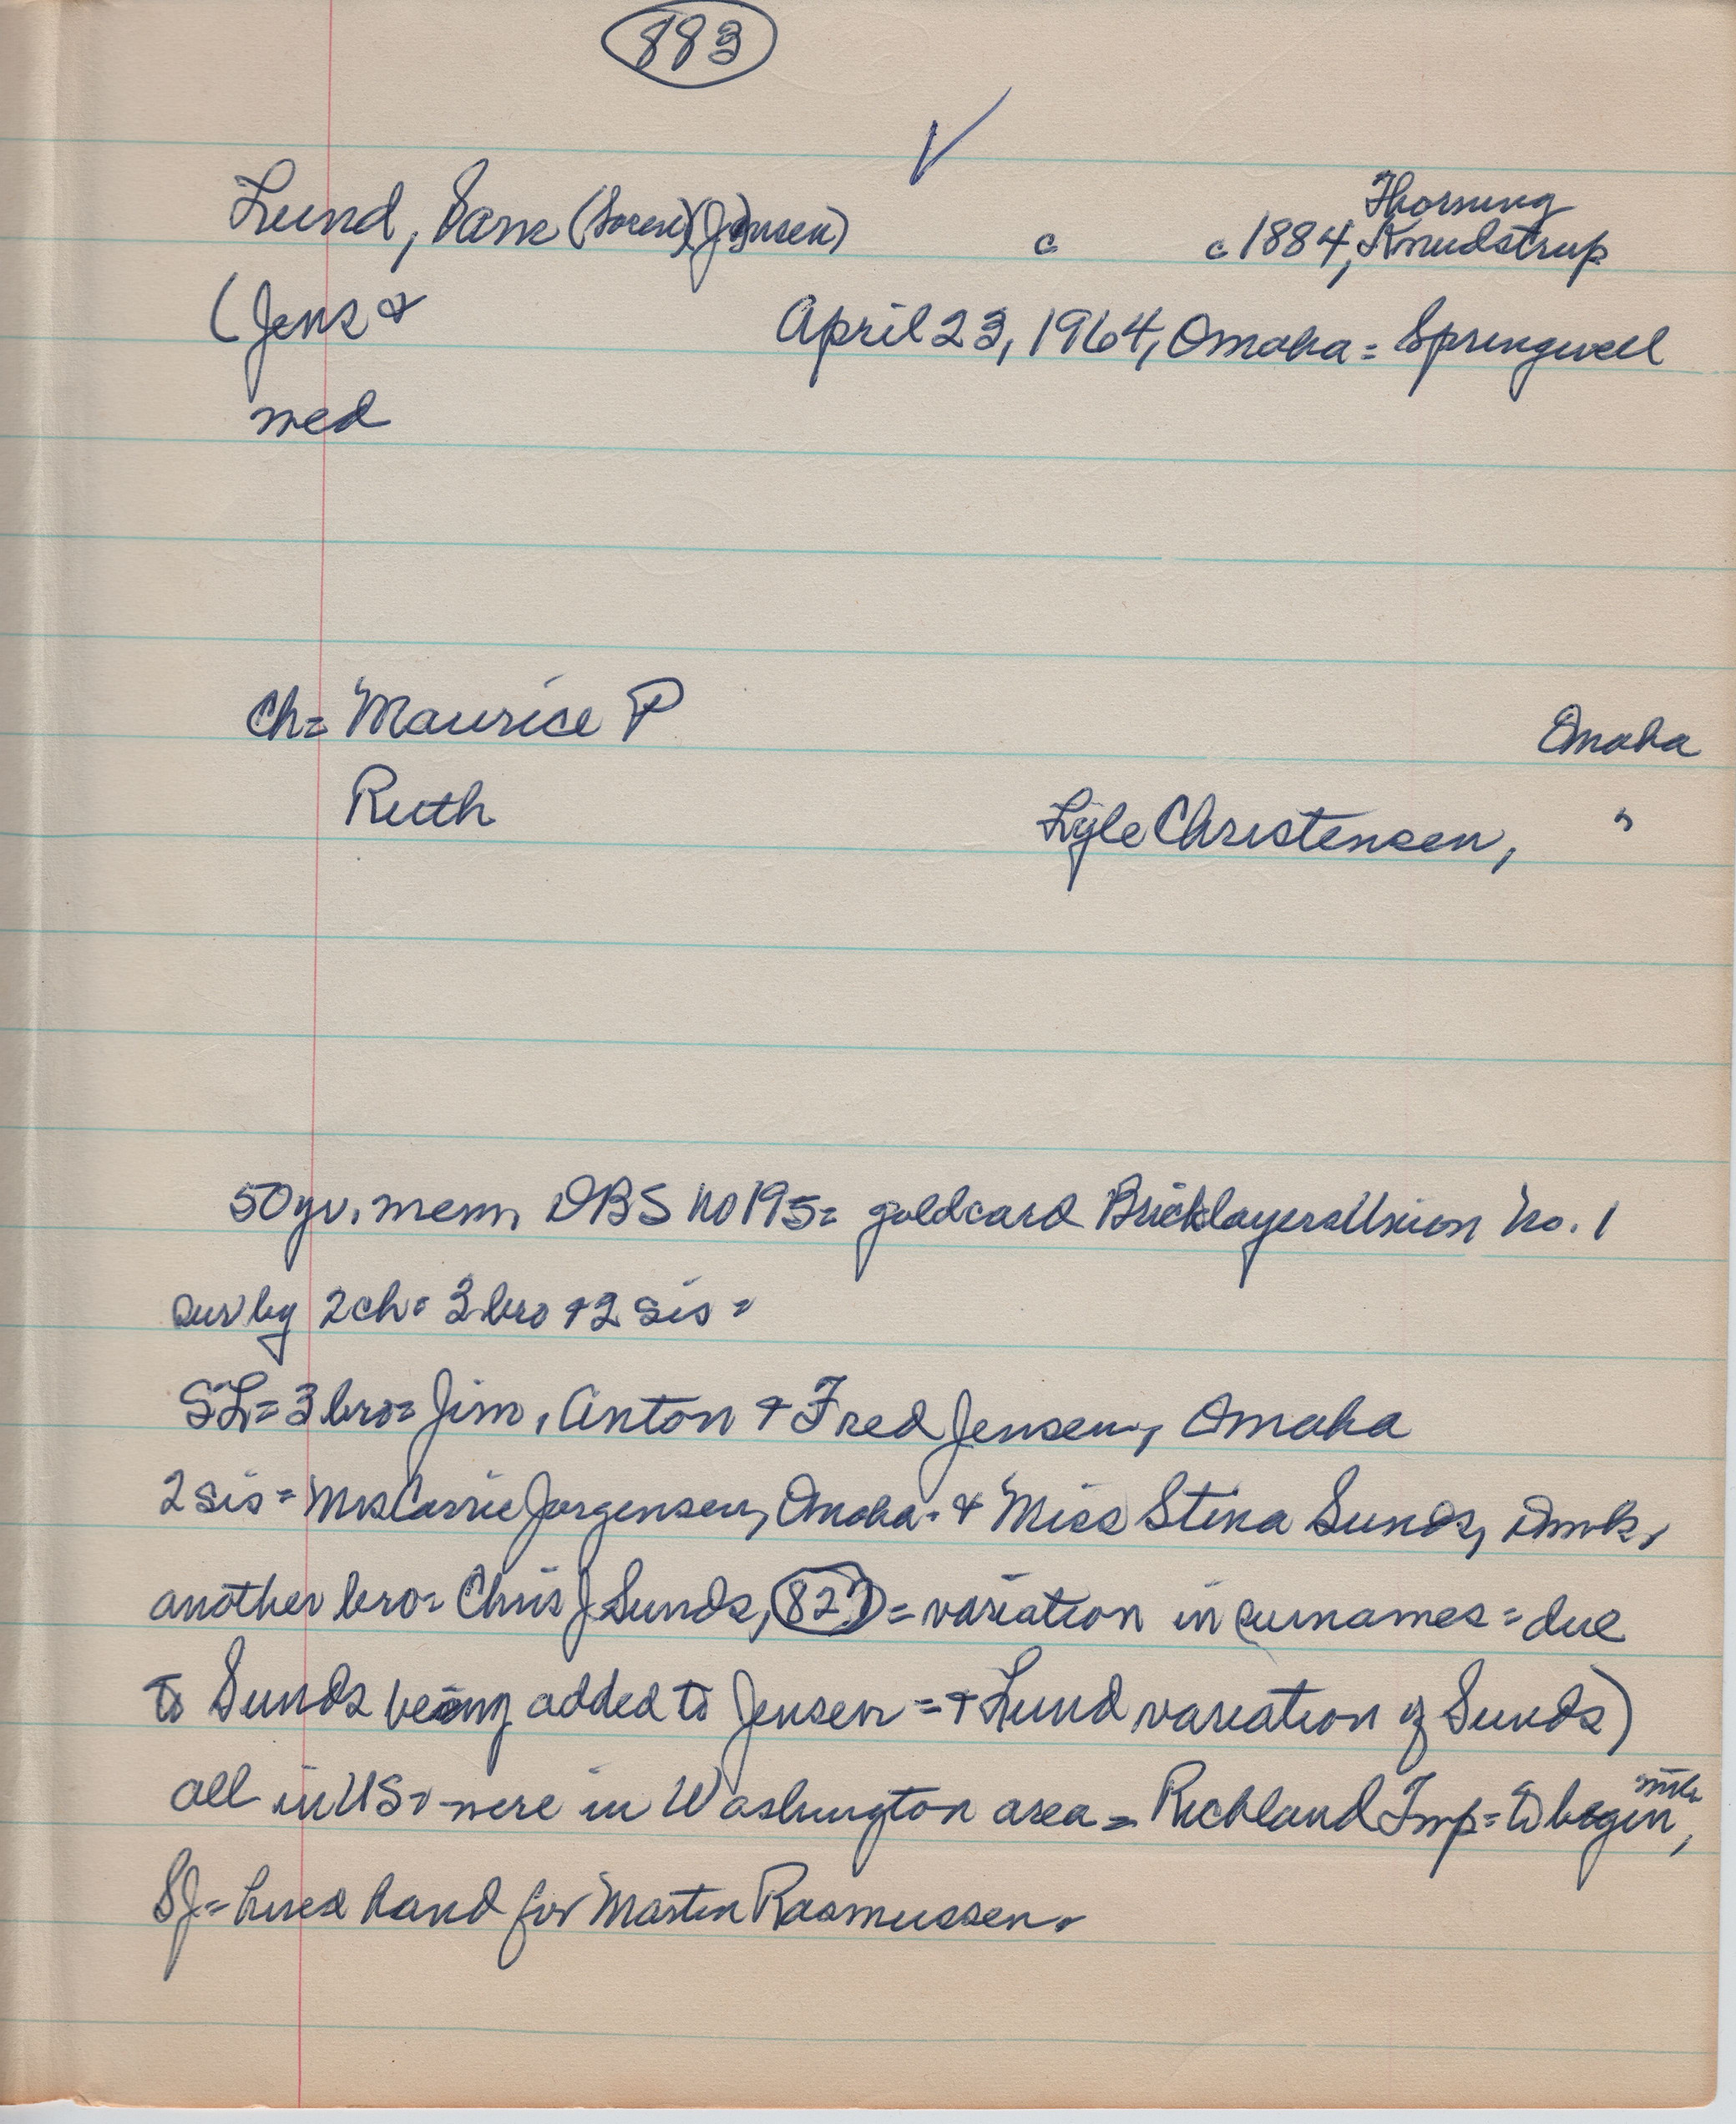 883
✓
Lund, Sam (Soren) (Jensen) c c 1884, Thorning Knudstrup
(Jens & April 23, 1964, Omaha = Springwell
med
ch= Maurice P Omaha
Ruth Lyle Christensen, "
50 yr. mem, DBS No 195= gold card Bricklayers Union No. 1
sur by 2 ch= 3 bro + 2 sis=
SL= 3 bro= Jim, Anton + Fred Jensen, Omaha
2 sis= Mrs Carrie Jorgensen, Omaha. + Miss Stina Sunds, Dmk,
another bro= Chris J Sunds, 827 = variation in surnames= due
to Sunds being added to Jensen =+ Lund variation of Sunds)
all in US, were in Washington area = Richland Twp= to begin,
SJ= hired hand for Martin Rasmussen.